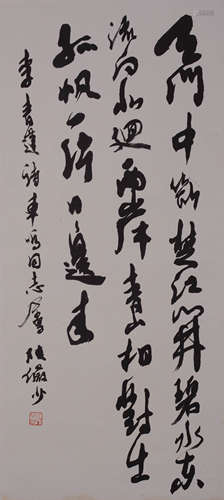 天門中斷楚江開碧水東
流向北迴兩岸青山相對出
孤帆一片日邊来
李青蓮詩車鳴同志屬 陸儼少